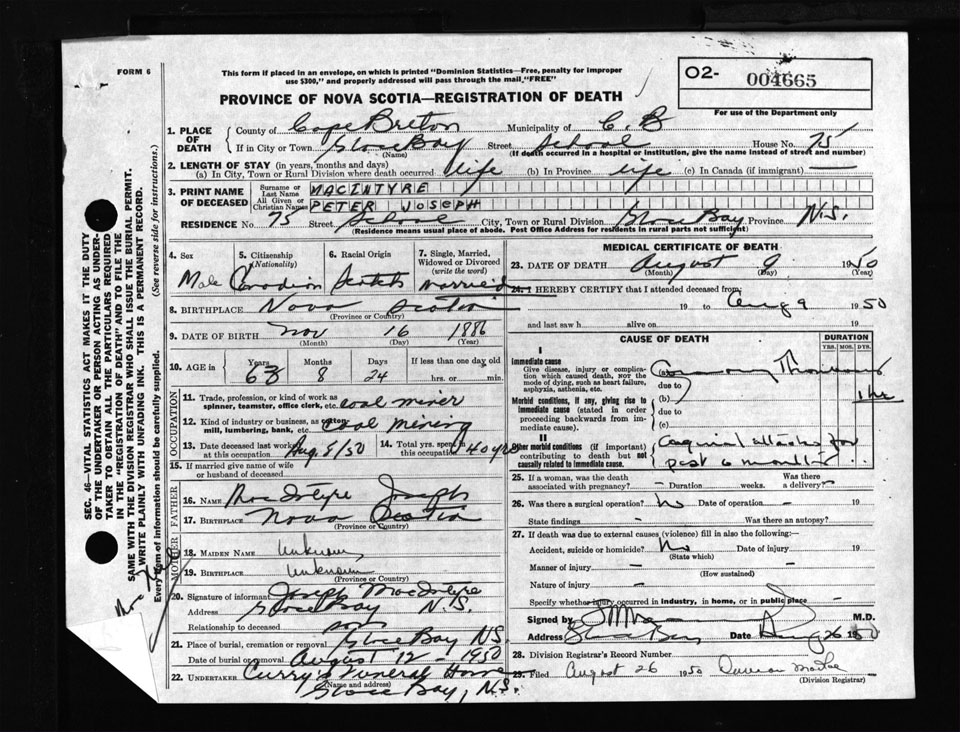 FORM 6
This form if placed in an envelope, on which is printed "Dominion Statistics—Free, penalty for improper
use $300," and properly addressed will pass through the mail, "FREE"
O2- 004665
For use of the Department only
PROVINCE OF NOVA SCOTIA—REGISTRATION OF DEATH
1. PLACE OF DEATH County of Cape Breton Municipality of C. B
If in City or Town Glace Bay Street School House No. 75
(Name) (If death occurred in a hospital or institution, give the name instead of street and number)
2. LENGTH OF STAY (in years, months and days)
(a) In City, Town or Rural Division where death occurred life (b) In Province life (c) In Canada (if immigrant) —
3. PRINT NAME OF DECEASED Surname or Last Name MACINTYRE
All Given or Christian Names PETER JOSEPH
RESIDENCE No. 75 Street School City, Town or Rural Division Glace Bay Province N.S.
(Residence means usual place of abode. Post Office Address for residents in rural parts not sufficient)
4. Sex Male
5. Citizenship (Nationality) Canadian
6. Racial Origin Scotch
7. Single, Married, Widowed or Divorced (write the word) Married
8. BIRTHPLACE Nova Scotia
(Province or Country)
9. DATE OF BIRTH Nov 16 1886
(Month) (Day) (Year)
10. AGE in Years 63 Months 8 Days 24 If less than one day old
hrs. or min.
OCCUPATION
11. Trade, profession, or kind of work as spinner, teamster, office clerk, etc. coal miner
12. Kind of industry or business, as cotton mill, lumbering, bank, etc. Coal mining
13. Date deceased last worked at this occupation Aug 8/50
14. Total yrs. spent in this occupation 40 yrs
15. If married give name of wife or husband of deceased
FATHER
16. NAME MacIntyre Joseph
17. BIRTHPLACE Nova Scotia
(Province or Country)
MOTHER
18. MAIDEN NAME Unknown
19. BIRTHPLACE Unknown
(Province or Country)
20. Signature of informant Joseph MacIntyre
Address Glace Bay N.S.
Relationship to deceased son
21. Place of burial, cremation or removal Glace Bay NS
Date of burial or removal August 12 - 1950
22. UNDERTAKER Curry's Funeral Home
(Name and address)
Glace Bay, N.S.
MEDICAL CERTIFICATE OF DEATH
23. DATE OF DEATH August 9 1950
(Month) (Day) (Year)
24. I HEREBY CERTIFY that I attended deceased from:
19 to Aug 9 1950
and last saw h alive on 19
CAUSE OF DEATH
DURATION
YRS. MOS. DYS.
I
Immediate cause
Give disease, injury or complication which caused death, not the mode of dying, such as heart failure, asphyxia, asthenia, etc.
(a) Coronary Thrombosis
due to
1 hr
Morbid conditions, if any, giving rise to immediate cause (stated in order proceeding backwards from immediate cause).
(b)
due to
(c)
II
Other morbid conditions (if important) contributing to death but not causally related to immediate cause.
Anginal attacks for
past 6 months
25. If a woman, was the death associated with pregnancy? – Duration weeks. Was there a delivery? –
26. Was there a surgical operation? No Date of operation — 19
State findings - Was there an autopsy?
27. If death was due to external causes (violence) fill in also the following:—
Accident, suicide or homicide? No Date of injury 19
(State which)
Manner of injury –
(How sustained)
Nature of injury –
Specify whether injury occurred in industry, in home, or in public place –
Signed by M.D.
Address Glace Bay Date Aug 26 1950
28. Division Registrar's Record Number
29. Filed August 26 1950
(Division Registrar)
SEC. 46—VITAL STATISTICS ACT MAKES IT THE DUTY
OF THE UNDERTAKER OR PERSON ACTING AS UNDERTAKER
TO OBTAIN ALL THE PARTICULARS REQUIRED
IN THE "REGISTRATION OF DEATH" AND TO FILE THE
SAME WITH THE DIVISION REGISTRAR WHO SHALL ISSUE THE BURIAL PERMIT.
WRITE PLAINLY WITH UNFADING INK. THIS IS A PERMANENT RECORD.
Every item of information should be carefully supplied. (See reverse side for instructions.)